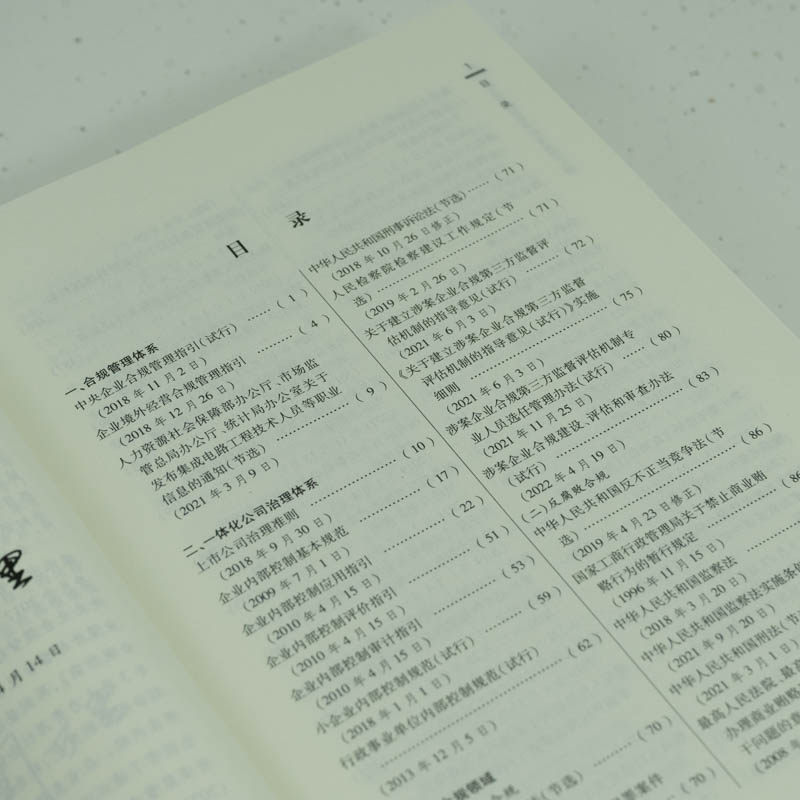 1
目 录
目 录
一、合规管理体系
中央企业合规管理指引(试行) …… ( 1 )
(2018 年 11 月 2 日)
企业境外经营合规管理指引 ……… ( 4 )
(2018 年 12 月 26 日)
人力资源社会保障部办公厅、市场监
管总局办公厅、统计局办公室关于
发布集成电路工程技术人员等职业
信息的通知(节选) ……………… ( 9 )
(2021 年 3 月 9 日)
二、一体化公司治理体系
上市公司治理准则 ……………… ( 10 )
(2018 年 9 月 30 日)
企业内部控制基本规范 ………… ( 17 )
(2009 年 7 月 1 日)
企业内部控制应用指引 ………… ( 22 )
(2010 年 4 月 15 日)
企业内部控制评价指引 ………… ( 51 )
(2010 年 4 月 15 日)
企业内部控制审计指引 ………… ( 53 )
(2010 年 4 月 15 日)
小企业内部控制规范(试行) …… ( 59 )
(2018 年 1 月 1 日)
行政事业单位内部控制规范(试行)
……………… ( 62 )
(2013 年 12 月 5 日)
合规领域
合规
(节选) …… ( 70 )
案件
…… ( 70 )
中华人民共和国刑事诉讼法(节选) …… ( 71 )
(2018 年 10 月 26 日修正)
人民检察院检察建议工作规定(节
选) ……………… ( 71 )
(2019 年 2 月 26 日)
关于建立涉案企业合规第三方监督评
估机制的指导意见(试行) ……… ( 72 )
(2021 年 6 月 3 日)
《关于建立涉案企业合规第三方监督
评估机制的指导意见(试行)》实施
细则 ……………… ( 75 )
(2021 年 6 月 3 日)
涉案企业合规第三方监督评估机制专
业人员选任管理办法(试行) …… ( 80 )
(2021 年 11 月 25 日)
涉案企业合规建设、评估和审查办法
(试行) ……………… ( 83 )
(2022 年 4 月 19 日)
(二)反腐败合规
中华人民共和国反不正当竞争法(节
选) ……………… ( 86 )
(2019 年 4 月 23 日修正)
国家工商行政管理局关于禁止商业贿
赂行为的暂行规定 ……… ( 86
(1996 年 11 月 15 日)
中华人民共和国监察法 ……
(2018 年 3 月 20 日)
中华人民共和国监察法实施条例
(2021 年 9 月 20 日)
中华人民共和国刑法(节
(2021 年 3 月 1 日
最高人民法院、最高
办理商业贿赂
干问题的意
(2008 年
月 14 日